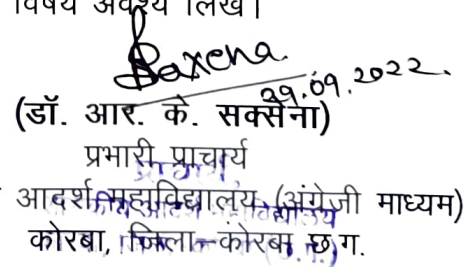 विषय अवश्य लिखें।
Saxena
29.09.2022.
(डॉ. आर. के. सक्सेना)
प्रभारी प्राचार्य
आदर्श महाविद्यालय (अंग्रेजी माध्यम)
कोरबा, जिला-कोरबा छ.ग.